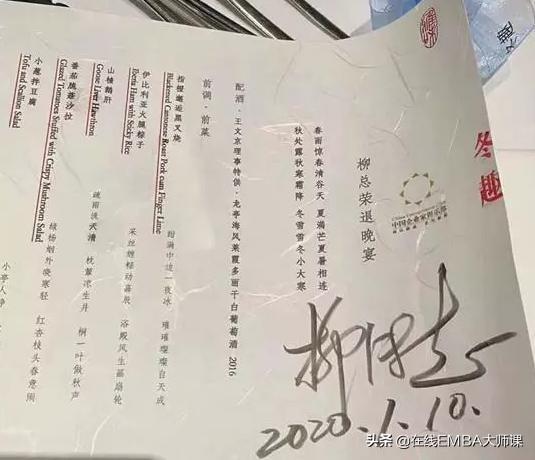 冬趣
中国企业家俱乐部
柳总荣退晚宴
春雨惊春清谷天 夏满芒夏暑相连
秋处露秋寒霜降 冬雪雪冬小大寒
配酒·王文京理事特供:龙亭海风莱霞多丽干白葡萄酒 2016
前调·前菜
指橙邂逅黑叉烧
Blackened Cantonese Roast Pork cum Finger Lime
甜满中边一夜冰 璀璀璨璨自天成
伊比利亚火腿粽子
Iberia Ham with Sticky Rice
采丝缠粽动嘉辰 浴殿风生扇轮
山楂鹅肝
Goose Liver Hawthorn
疏雨洗天清 枕簟凉生井 桐一叶做秋声
番茄脆菇沙拉
Glazed Tomatoes Stuffed with Crispy Mushroom Salad
绿杨烟外晓寒轻 红杏枝头春意闹
小葱拌豆腐
Tofu and Scallion Salad
小亭人静
柳传志
2020.1.10.
头条@在线EMBA大师课